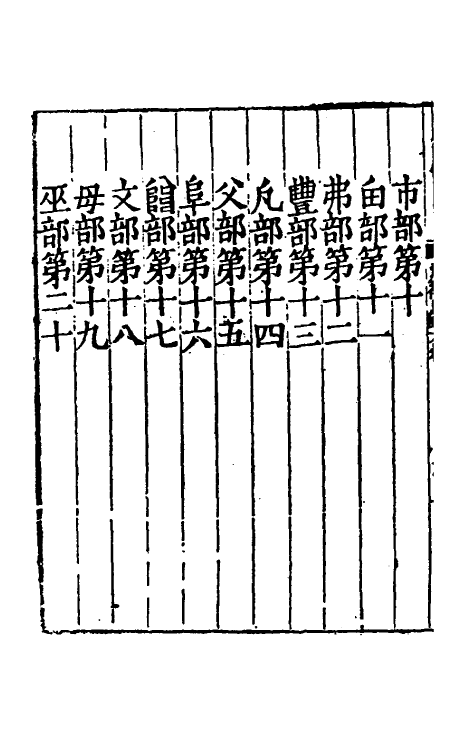 市部第十
甶部第十一
弗部第十二
豐部第十三
凢部第十四
父部第十五
阜部第十六
部第十七
文部第十八
毋部第十九
巫部第二十